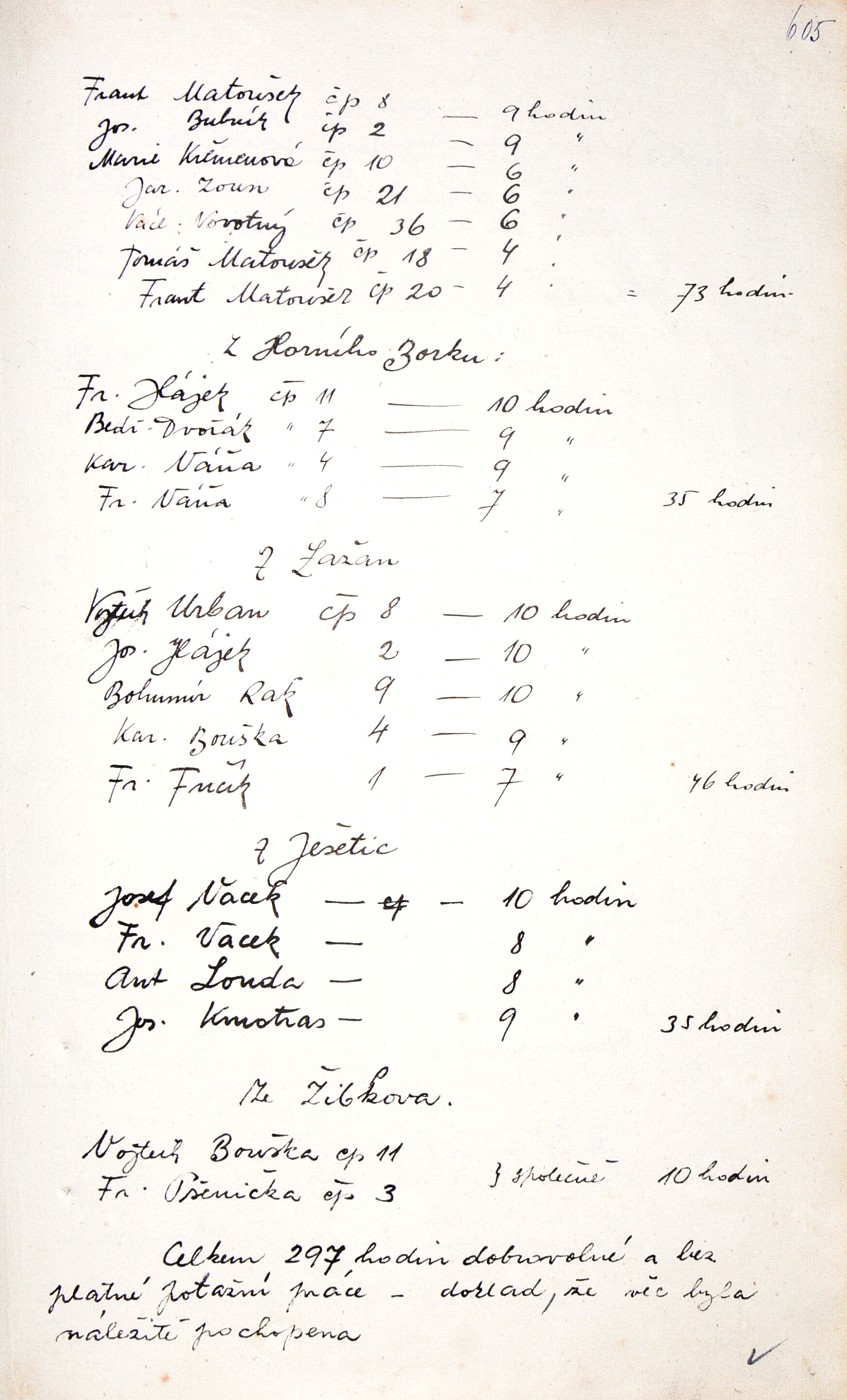 605
Frant Matoušek čp 8 — 9 hodin
Jos. Bubník čp 2 — 9 "
Marie Křemenová čp 10 — 6 "
Jar. Zoun čp 21 — 6 "
Václ. Novotný čp 36 — 6 "
Tomáš Matoušek čp 18 — 4 "
Frant Matoušek čp 20 - 4 " = 73 hodin
Z Horního Borku:
Fr. Hájek čp 11 — 10 hodin
Bedř. Dvořák " 7 — 9 "
Kar. Váňa " 4 — 9 "
Fr. Váňa " 8 — 7 " 35 hodin
Z Lažan
Vojtěch Urban čp 8 — 10 hodin
Jos. Hájek 2 — 10 "
Bohumír Rak 9 — 10 "
Kar. Bouška 4 — 9 "
Fr. 1 — 7 " 46 hodin
Z Ješetic
Josef Vacek — čp — 10 hodin
Fr. Vacek — 8 "
Ant Louda — 8 "
Jos. Kmotras — 9 " 35 hodin
Ze Žibkova.
Vojtěch Bouška čp 11
Fr. Pšenička čp 3 } společně 10 hodin
Celkem 297 hodin dobrovolné a bez
platné potažní práce - doklad, že věc byla
náležitě pochopena